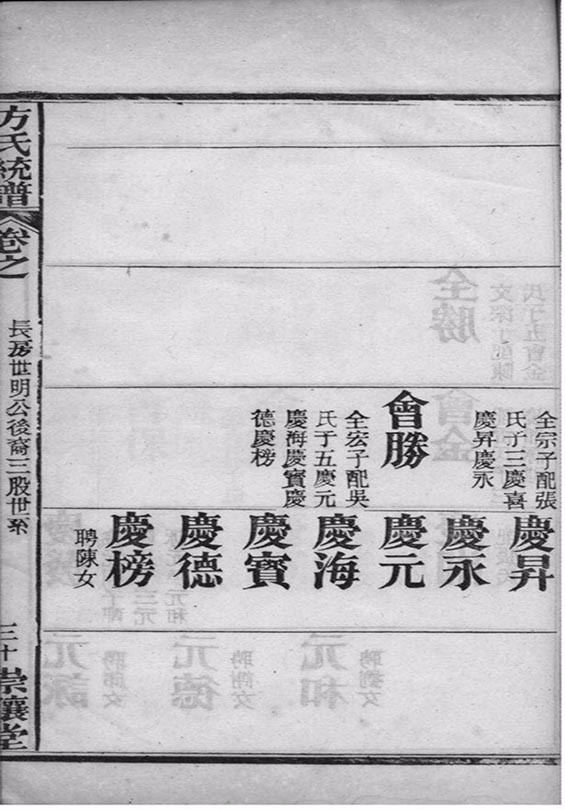 全宗子配張
氏子三慶喜
慶昇慶永
會勝
全宏子配吳
氏子五慶元
慶海慶寶慶
德慶榜
慶昇
慶永
慶元
慶海
慶寶
慶德
慶榜
聘陳女
方氏統譜
卷之一
長房世明公後裔三股世系
三十
崇讓堂